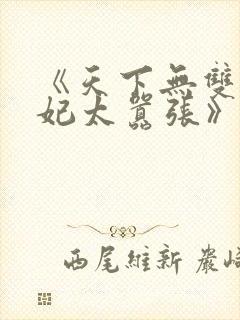 《天下無雙
妃太囂張》
西尾維新 巖崎